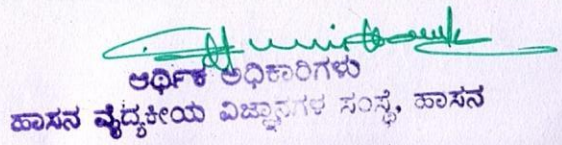 ಆರ್ಥಿಕ ಅಧಿಕಾರಿಗಳು
ಹಾಸನ ವೈದ್ಯಕೀಯ ವಿಜ್ಞಾನಗಳ ಸಂಸ್ಥೆ, ಹಾಸನ